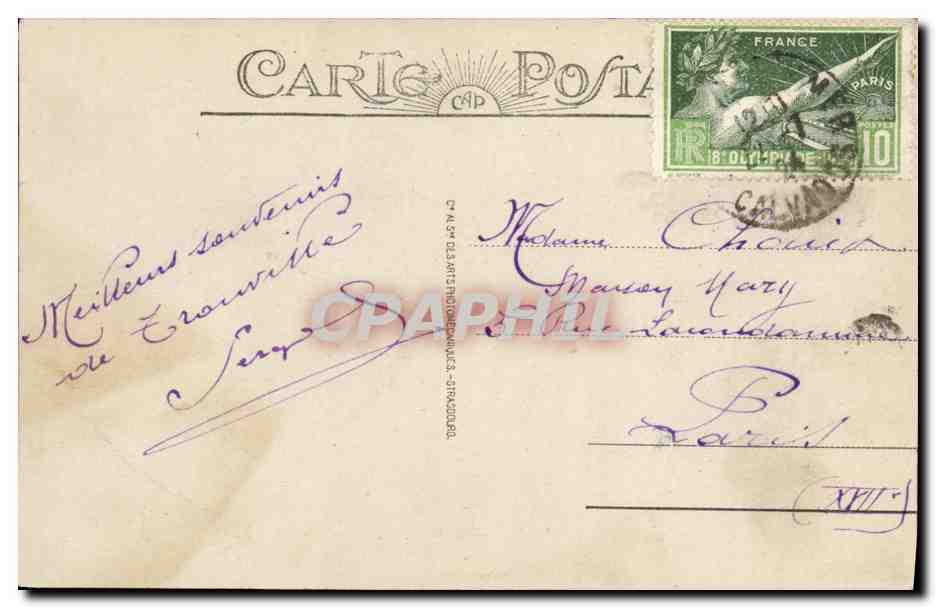 CARTE POSTA
CAP
FRANCE
PARIS
POSTES
RF
8e OLYMPIADE
10
CALVADOS
Meilleurs souvenirs
de Trouville
Serge
Cie ALSnne DES ARTS PHOTOMÉCANIQUES. - STRASBOURG.
Madame
Maison Mary
3 Rue
Paris
(XVIIe)
CPAPHIL